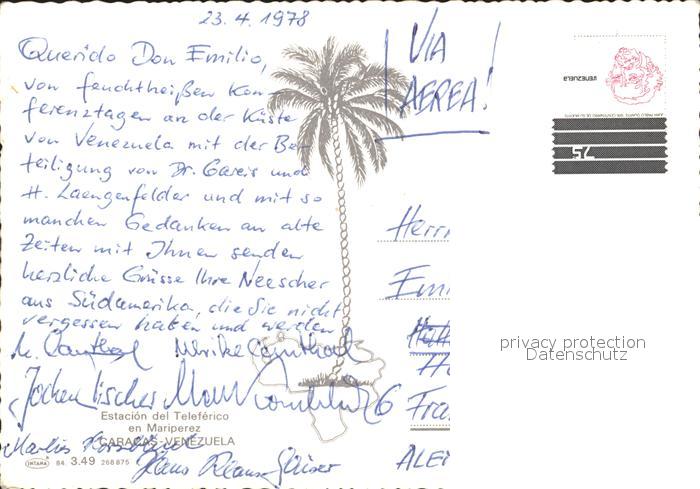 23.4.1978
Querido Don Emilio,
von feuchtheißen Kon-
ferenztagen an der Küste
von Venezuela mit der Be-
teiligung von Dr. Gareis und
H. Laengenfelder und mit so
manchen Gedanken an alte
Zeiten mit Ihnen senden
herzliche Grüsse Ihre Neescher
aus Südamerika, die Sie nicht
vergessen haben und werden
Ulrike
Jochen Fischer
Klaus
Estación del Teleférico
en Mariperez
CARACAS-VENEZUELA
INTANA 84. 3.49 268875
VIA
AEREA!
VENEZUELA
75
Herrn
Emi
6 Fra
ALE
privacy protection
Datenschutz